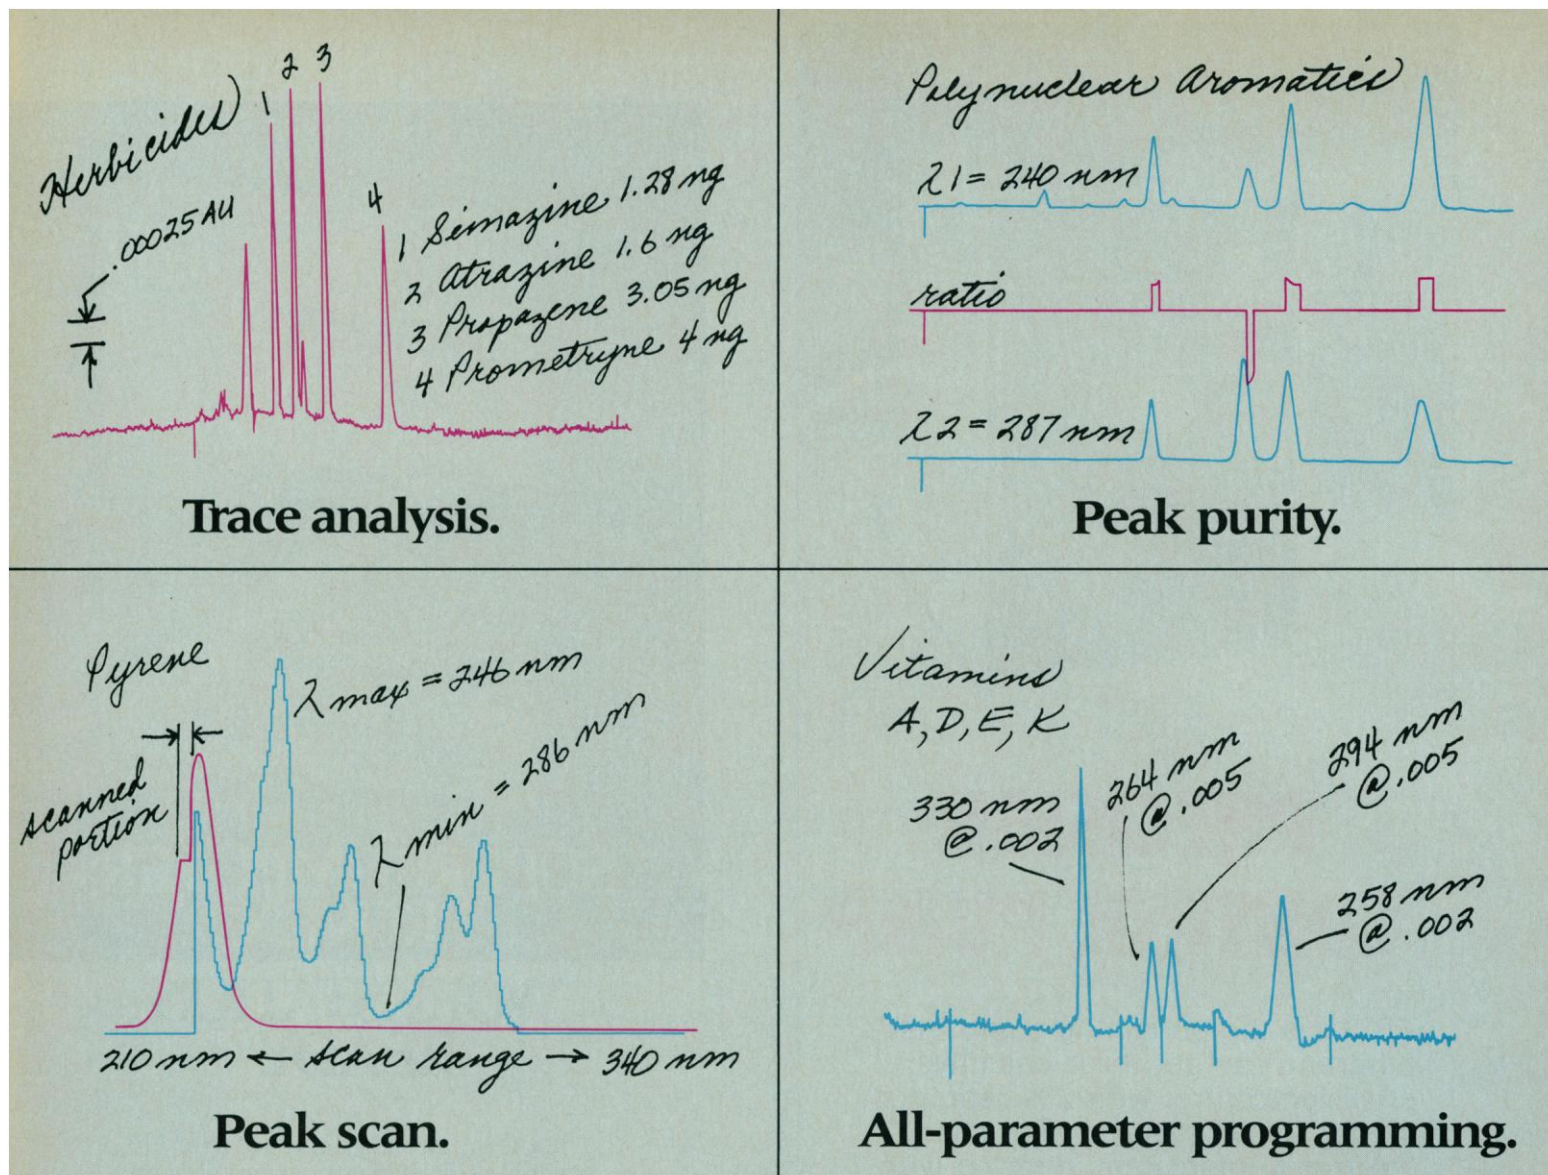 Herbicides
1
2
3
4
.00025 AU
1 Simazine 1.28 ng
2 Atrazine 1.6 ng
3 Propazene 3.05 ng
4 Prometryne 4 ng
Trace analysis.
Polynuclear Aromatics
λ1 = 240 nm
ratio
λ2 = 287 nm
Peak purity.
Pyrene
λ max = 246 nm
λ min = 286 nm
scanned
portion
210 nm ← scan range → 340 nm
Peak scan.
Vitamins
A, D, E, K
330 nm
@ .002
264 nm
@ .005
294 nm
@ .005
258 nm
@ .002
All-parameter programming.